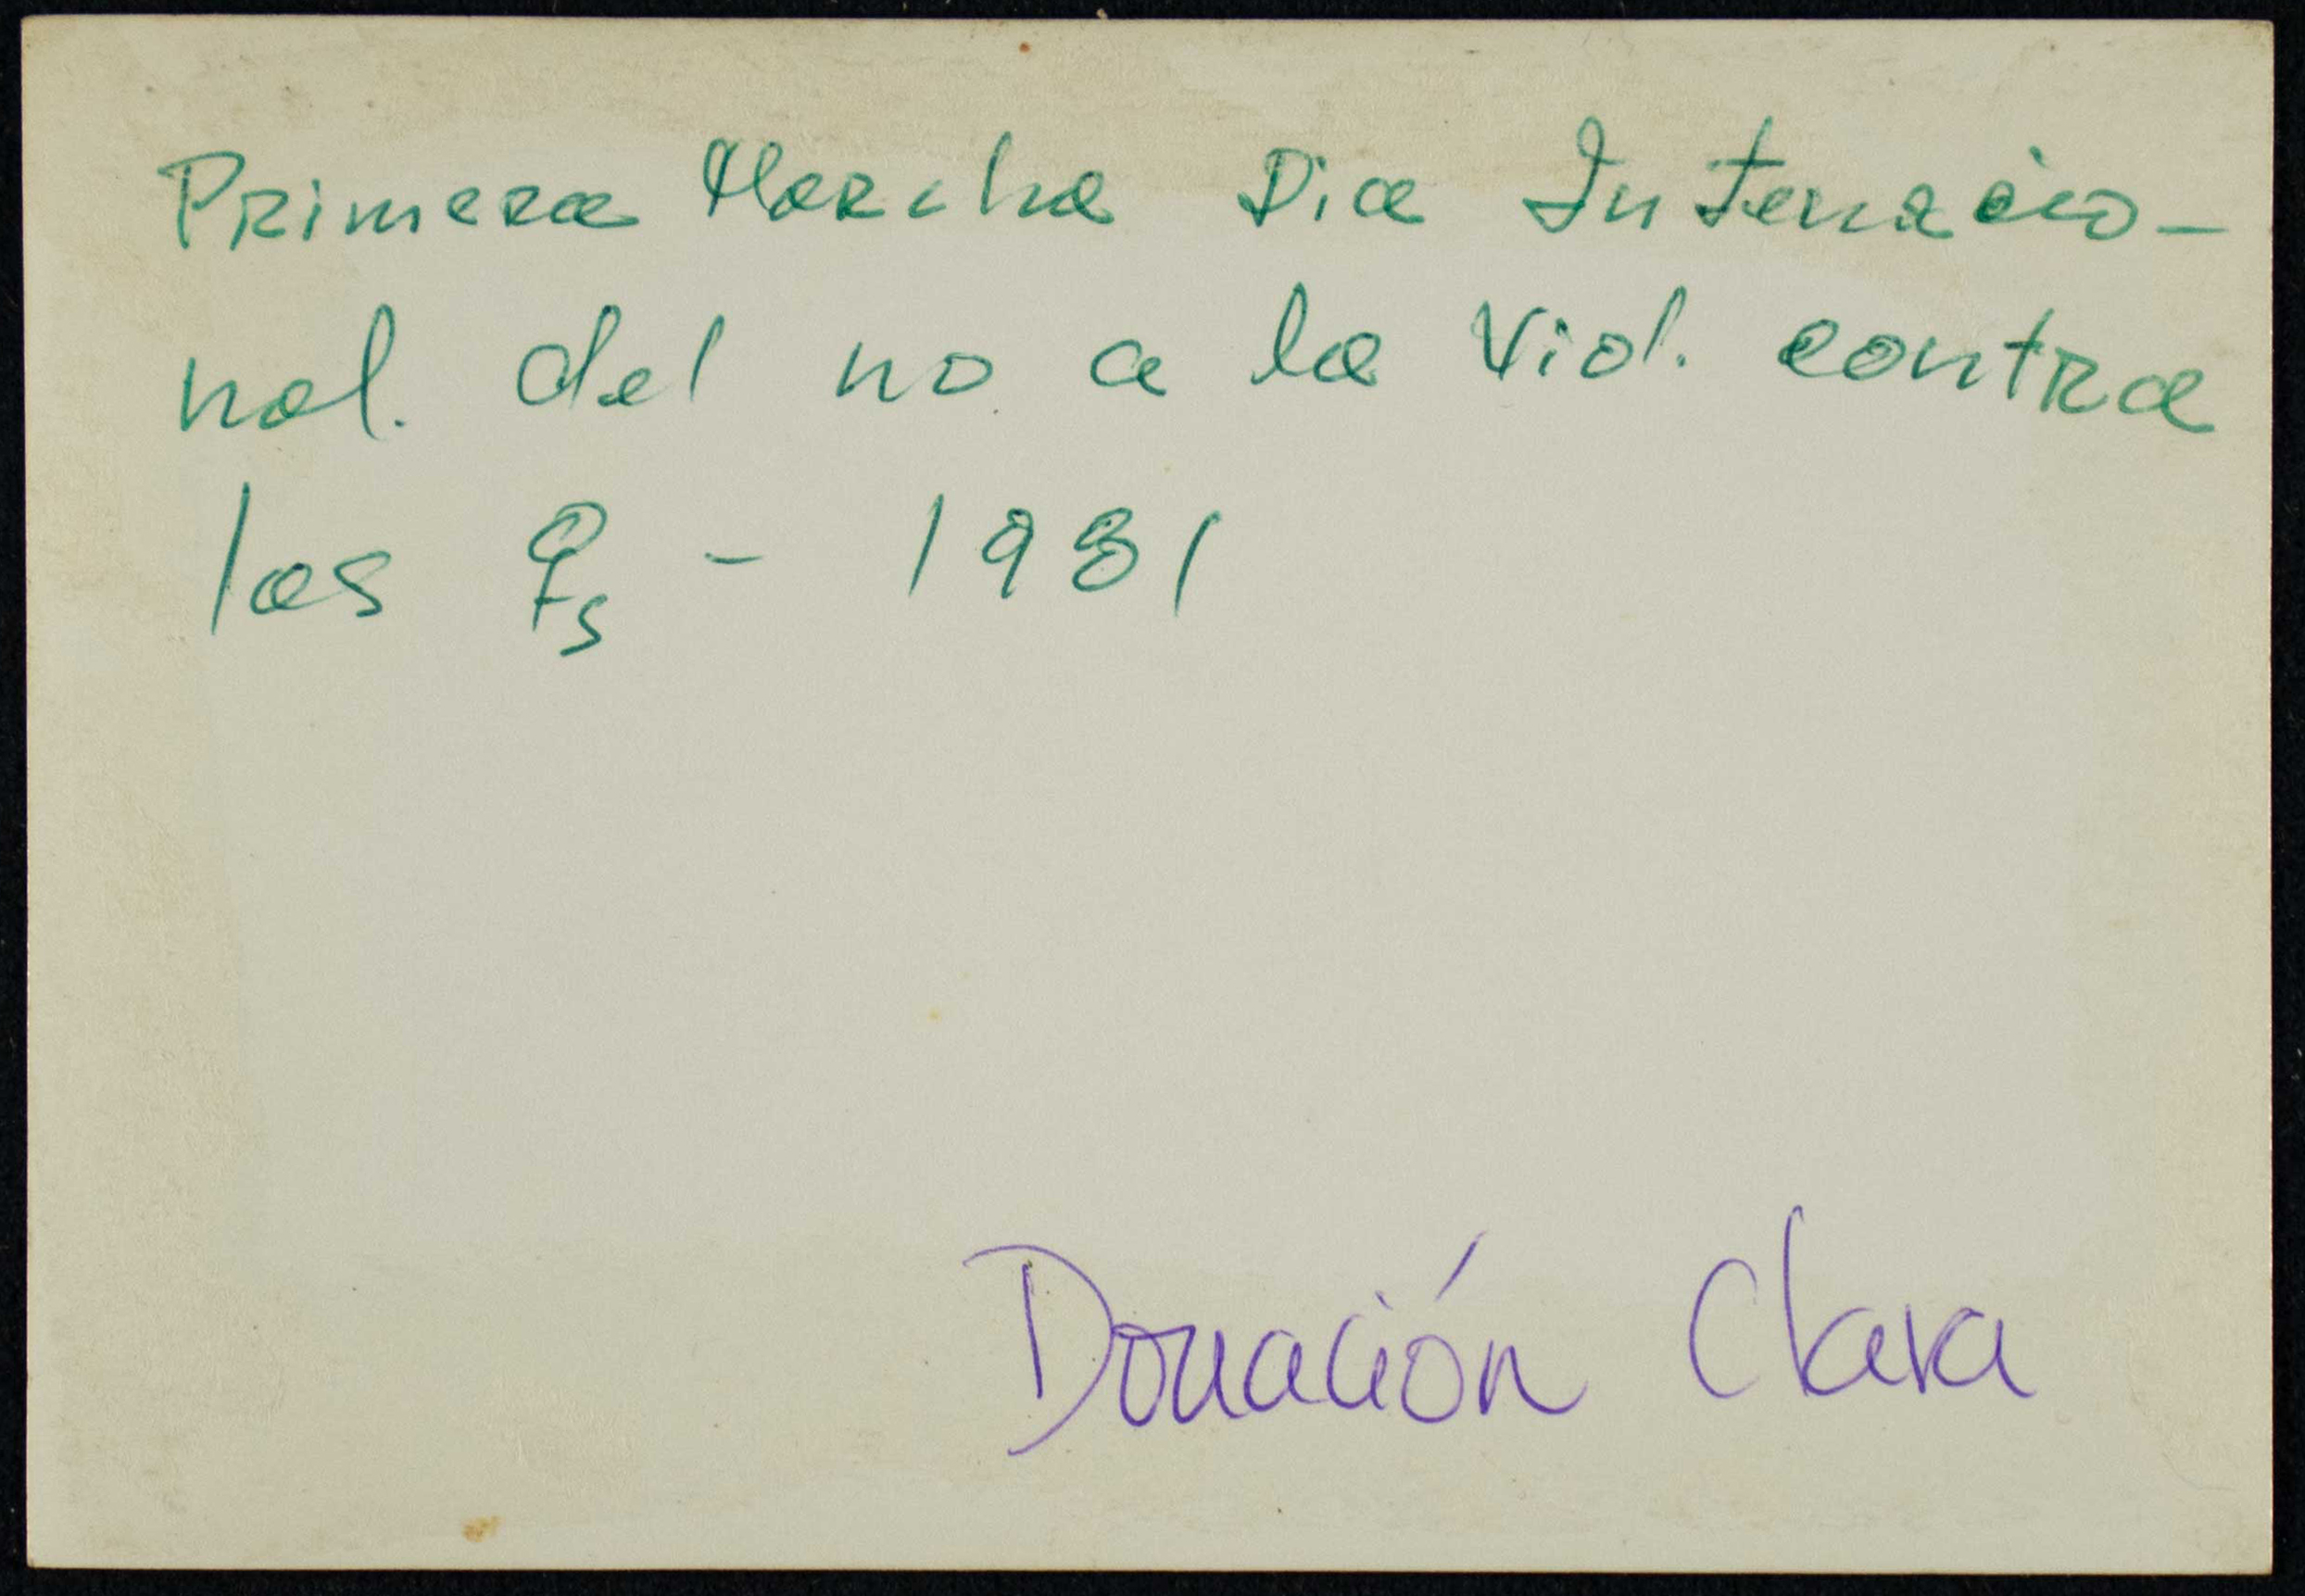 Primera Marcha Dia Intenacio-
nal. del no a la Viol. contra
las ♀s - 1981
Donación Clara